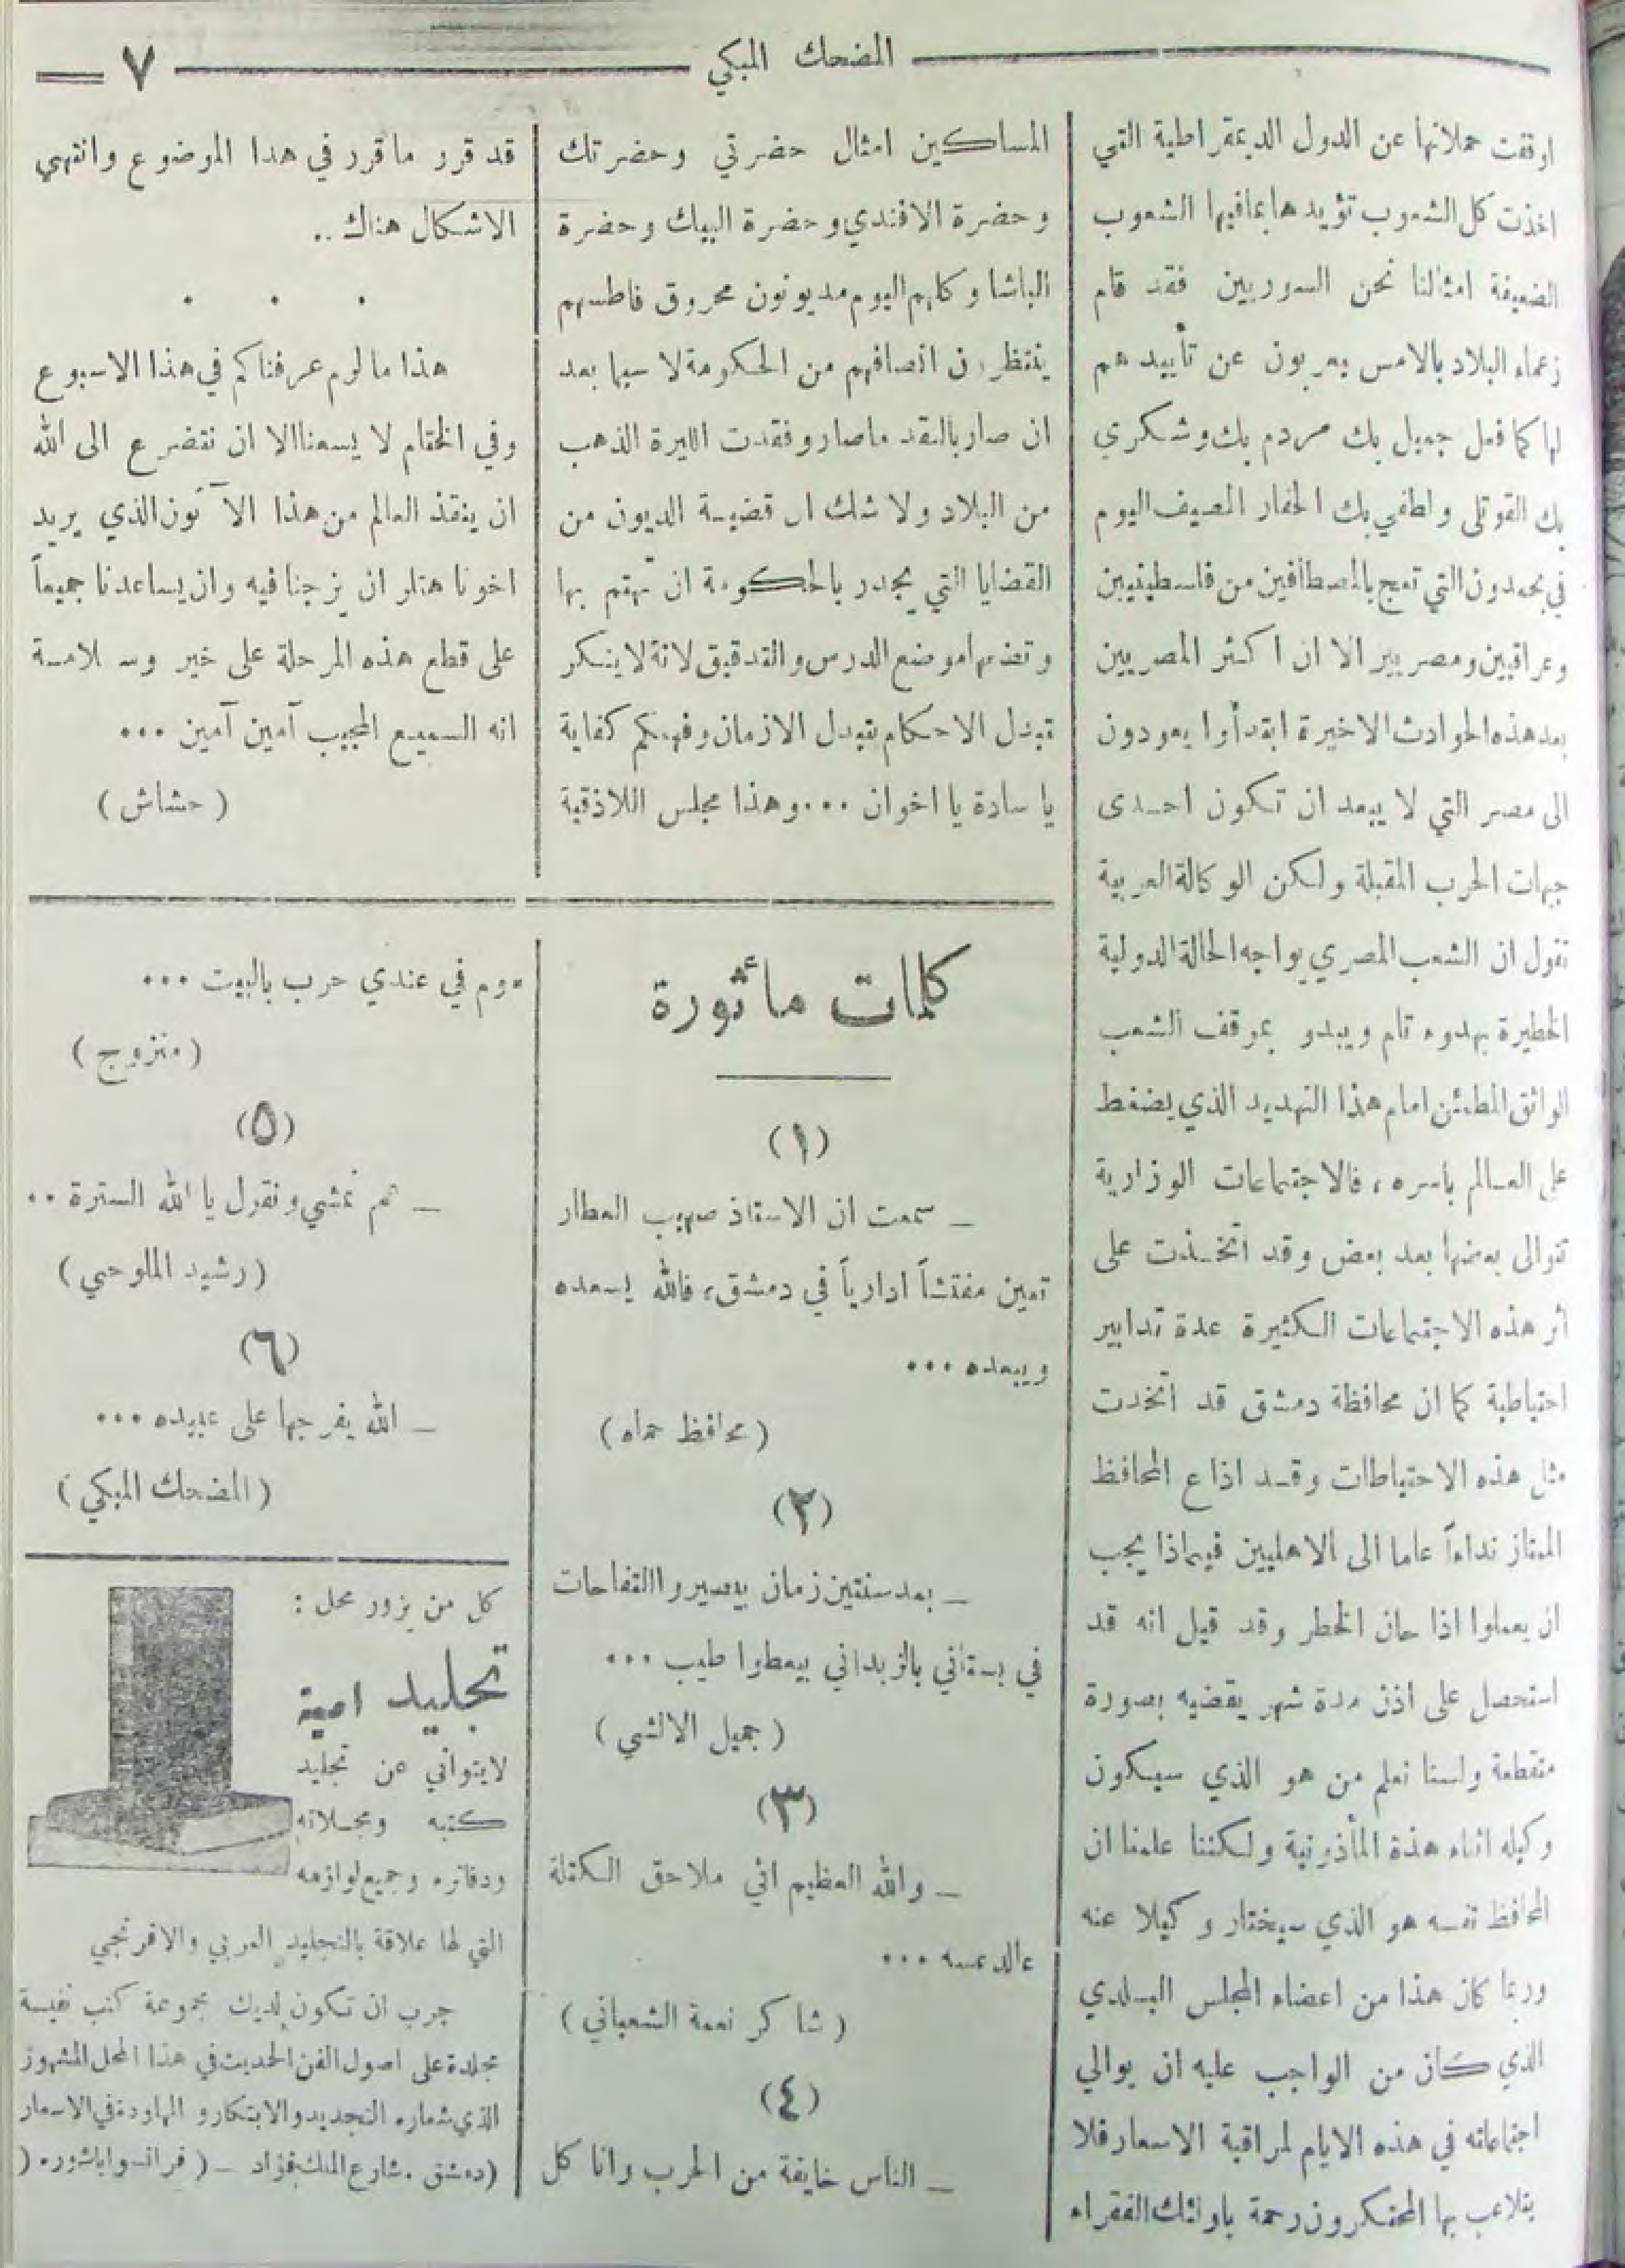 المضحك المبكي
٧
اوقفت حملاتها عن الدول الديمقراطية التي
اخذت كل الشعوب تؤيدها بما فيها الشعوب
الضعيفة امثالنا نحن السوريين فقد قام
زعماء البلاد بالامس يعربون عن تأييدهم
لها كما فعل جميل بك مردم بك وشكري
بك القوتلي ولطفي بك الحفار المصيف اليوم
في بحمدون التي تعج بالمصطافين من فلسطينيين
وعراقيين ومصريين الا ان اكثر المصريين
بعد هذه الحوادث الاخيرة ابتدأوا يعودون
الى مصر التي لا يبعد ان تكون احدى
جبهات الحرب المقبلة ولكن الوكالة العربية
تقول ان الشعب المصري يواجه الحالة الدولية
الخطيرة بهدوء تام ويبدو بموقف الشعب
الواثق المطمئن امام هذا التهديد الذي يضغط
على العالم باسره ، فالاجتماعات الوزارية
تتوالى بعضها بعد بعض وقد اتخذت على
أثر هذه الاجتماعات الكثيرة عدة تدابير
احتياطية كما ان محافظة دمشق قد اتخذت
مثل هذه الاحتياطات وقد اذاع المحافظ
الممتاز نداءاً عاما الى الاهليين فيماذا يجب
ان يعملوا اذا حان الخطر وقد قيل انه قد
استحصل على اذن مدة شهر يقضيه بصورة
متقطعة ولسنا نعلم من هو الذي سيكون
وكيله اثناء هذة المأذونية ولكننا علمنا ان
المحافظ نفسه هو الذي سيختار وكيلا عنه
وربما كان هذا من اعضاء المجلس البلدي
الذي كان من الواجب عليه ان يوالي
اجتماعاته في هذه الايام لمراقبة الاسعار فلا
يتلاعب بها المحتكرون رحمة باولئك الفقراء
المساكين امثال حضرتي وحضرتك
وحضرة الافندي وحضرة البيك وحضرة
الباشا وكلهم اليوم مديونون محروق فاطسهم
ينتظرون انصافهم من الحكومة لا سيما بعد
ان صار بالنقد ما صار وفقدت الليرة الذهب
من البلاد ولا شك ان قضية الديون من
القضايا التي يجدر بالحكومة ان تهتم بها
وتضعها موضع الدرس والتدقيق لانة لا ينكر
تبدل الاحكام بتبدل الازمان وفهمكم كفاية
يا سادة يا اخوان ... وهذا مجلس اللاذقية
قد قرر ما قرر في هدا الموضوع وانتهى
الاشكال هناك ..
. . .
هذا ما لزم عرفناكم في هذا الاسبوع
وفي الختام لا يسعنا الا ان نتضرع الى الله
ان ينقذ العالم من هذا الآتون الذي يريد
اخونا هتلر ان يزجنا فيه وان يساعدنا جميعاً
على قطع هذه المرحلة على خير وسلامة
انه السميع المجيب آمين آمين ...
( حشاش )
كلمات مأثورة
(١)
_ سمعت ان الاستاذ صهيب العطار
تعين مفتشاً ادارياً في دمشق، فالله يسعده
ويبعده ...
( محافظ حماه )
(٢)
_ بعد سنتين زمان بيصيروا التفاحات
في بستاني بالزبداني بيعطوا طيب ...
( جميل الالشي )
(٣)
_ والله العظيم اني ملاحق الكتلة
عالدعسه ...
( شاكر نعمة الشعباني )
(٤)
_ الناس خايفة من الحرب وانا كل
يوم في عندي حرب بالبيت ...
( متزوج )
(٥)
_ نمشي ونقول يا الله السترة ..
( رشيد الملوحي )
(٦)
_ الله يفرجها على عبيده ...
( المضحك المبكي )
كل من يزور محل :
تجليد امية
لا يتوانى عن تجليد
كتبه ومجلاته
ودفاتره وجميع لوازمه
التي لها علاقة بالتجليد العربي والافرنجي
جرب ان تكون لديك مجموعة كتب نفيسة
مجلدة على اصول الفن الحديث في هذا المحل المشهور
الذي شعاره التجديد والابتكار والمهاودة في الاسعار
(دمشق . شارع الملك فؤاد _ ( فرانسوا باشور. (